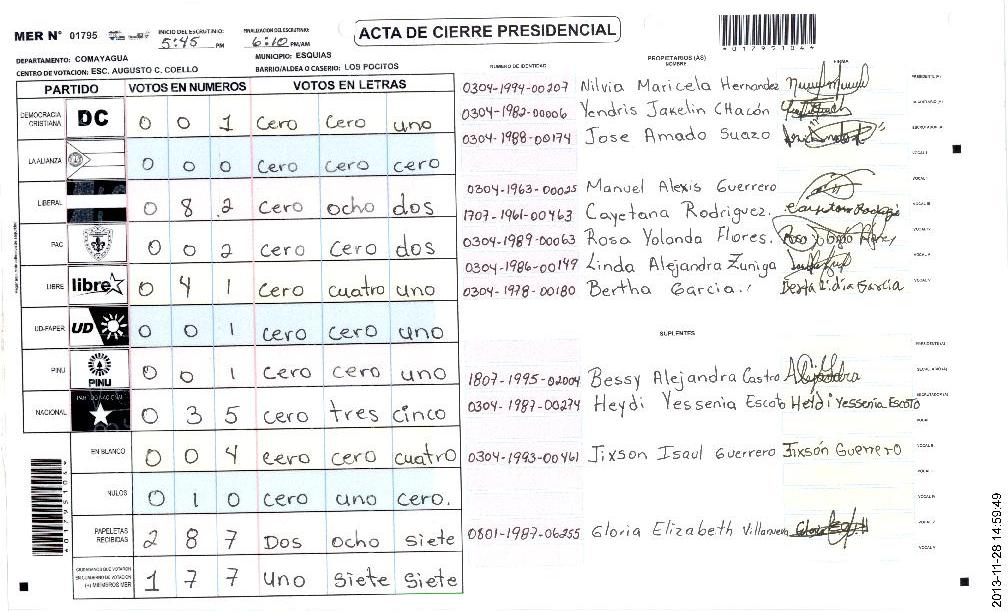 MER N° 01795
INICIO DEL ESCRUTINIO: 5:45 PM
FINALIZACION DEL ESCRUTINIO: 6:10 PM/AM
ACTA DE CIERRE PRESIDENCIAL
DEPARTAMENTO: COMAYAGUA
MUNICIPIO: ESQUIAS
CENTRO DE VOTACION: ESC. AUGUSTO C. COELLO
BARRIO/ALDEA O CASERIO: LOS POCITOS
PARTIDO VOTOS EN NUMEROS VOTOS EN LETRAS
DEMOCRACIA CRISTIANA DC 0 0 1 cero cero uno
LA ALIANZA 0 0 0 cero cero cero
LIBERAL 0 8 2 cero ocho dos
PAC 0 0 2 cero cero dos
LIBRE libre 0 4 1 cero cuatro uno
UD-FAPER UD 0 0 1 cero cero uno
PINU PINU 0 0 1 cero cero uno
NACIONAL 0 3 5 cero tres cinco
EN BLANCO 0 0 4 cero cero cuatro
NULOS 0 1 0 cero uno cero.
PAPELETAS RECIBIDAS 2 8 7 Dos ocho siete
CIUDADANOS QUE VOTARON EN CUADERNO DE VOTACION (+) MIEMBROS MER 1 7 7 uno siete siete
NUMERO DE IDENTIDAD PROPIETARIOS (AS) NOMBRE FIRMA
0304-1994-00207 Nilvia Maricela Hernandez
0304-1982-00006 Yendris Jakelin CHacón
0304-1988-00174 Jose Amado Suazo
0304-1963-00025 Manuel Alexis Guerrero
1707-1961-00463 Cayetana Rodriguez.
0304-1989-00063 Rosa Yolanda Flores.
0304-1986-00149 Linda Alejandra Zuniga
0304-1978-00180 Bertha Garcia.
SUPLENTES
1807-1995-02004 Bessy Alejandra Castro
0304-1987-00274 Heydi Yessenia Escoto Heydi Yessenia Escoto
0304-1993-00461 Jixson Isaul Guerrero Jixsón Guerrero
0801-1987-06255 Gloria Elizabeth Villanueva
2013-11-28 14:59:49